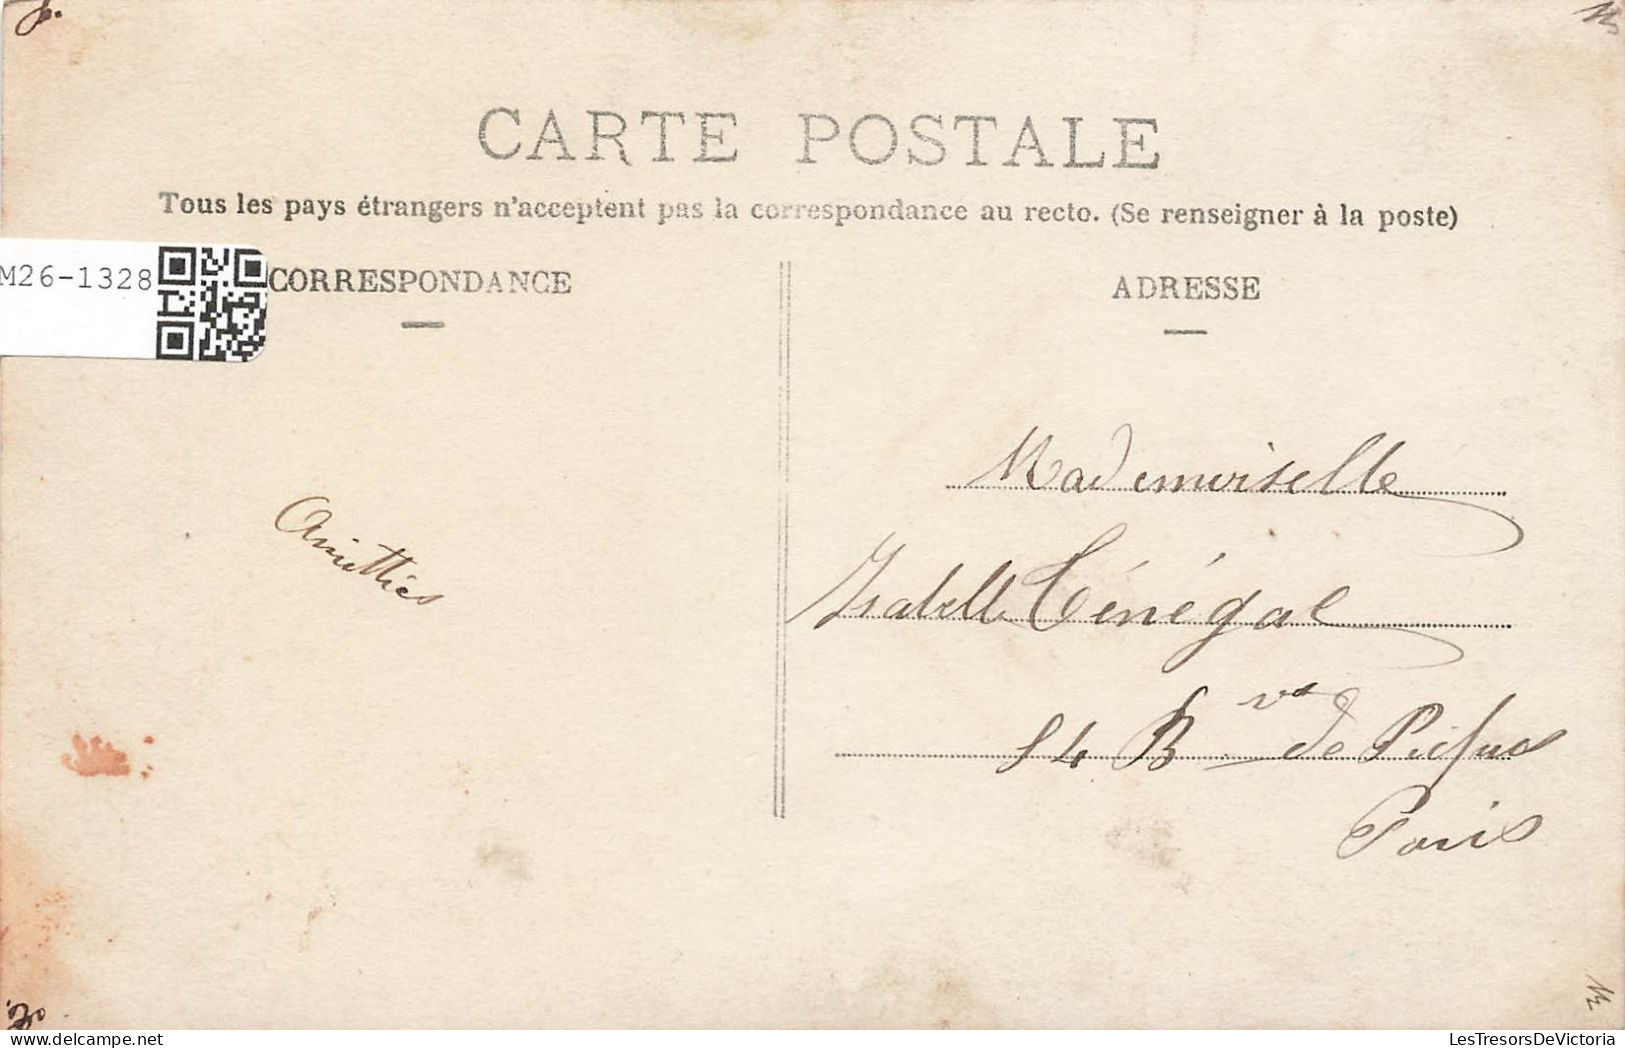 CARTE POSTALE
Tous les pays étrangers n'acceptent pas la correspondance au recto. (Se renseigner à la poste)
M26-1328
CORRESPONDANCE
ADRESSE
Amitties
Mademoiselle
Isabelle Ténégal
84 Bvd de Picpus
Paris
LesTresorsDeVictoria